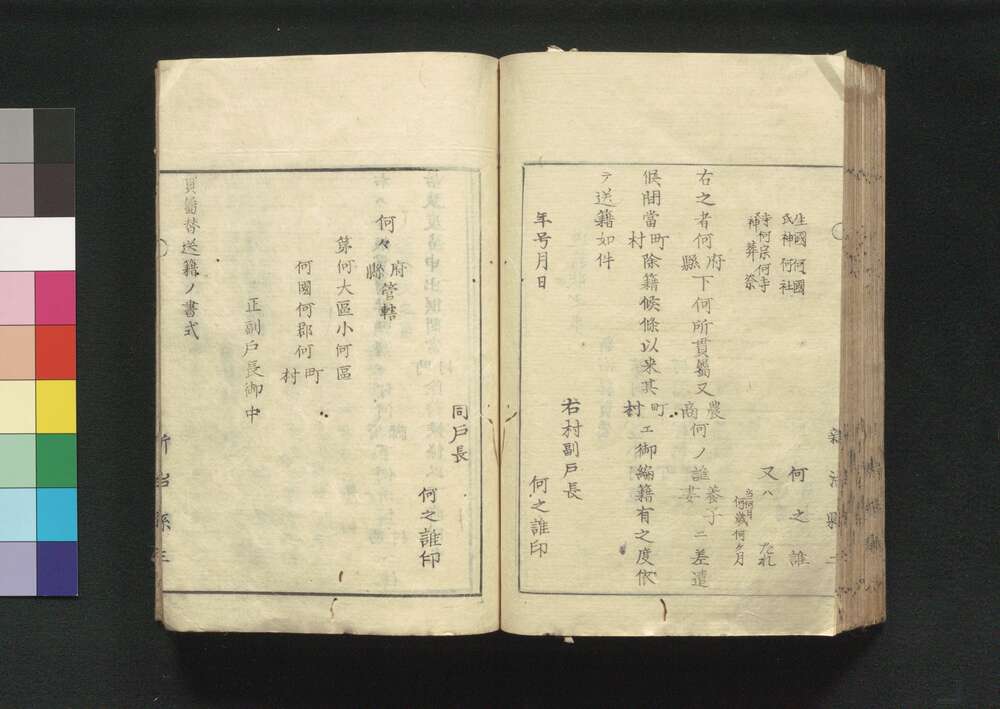 生國 何國
氏神 何社
寺何宗何寺
神葬祭
何之誰
又ハ たれ
当何月
何歳何ヶ月
右之者何府縣下何所貫屬又農商何ノ誰養子妻ニ差遣
候間當町村除籍候條以来其町村エ御編籍有之度依
テ送籍如件
年号月日
右村副戸長
何之誰印
同戸長
何之誰印
何々府縣管轄
第何大區小何區
何國何郡何町村
正副戸長御中
貫屬替送籍ノ書式
新治縣